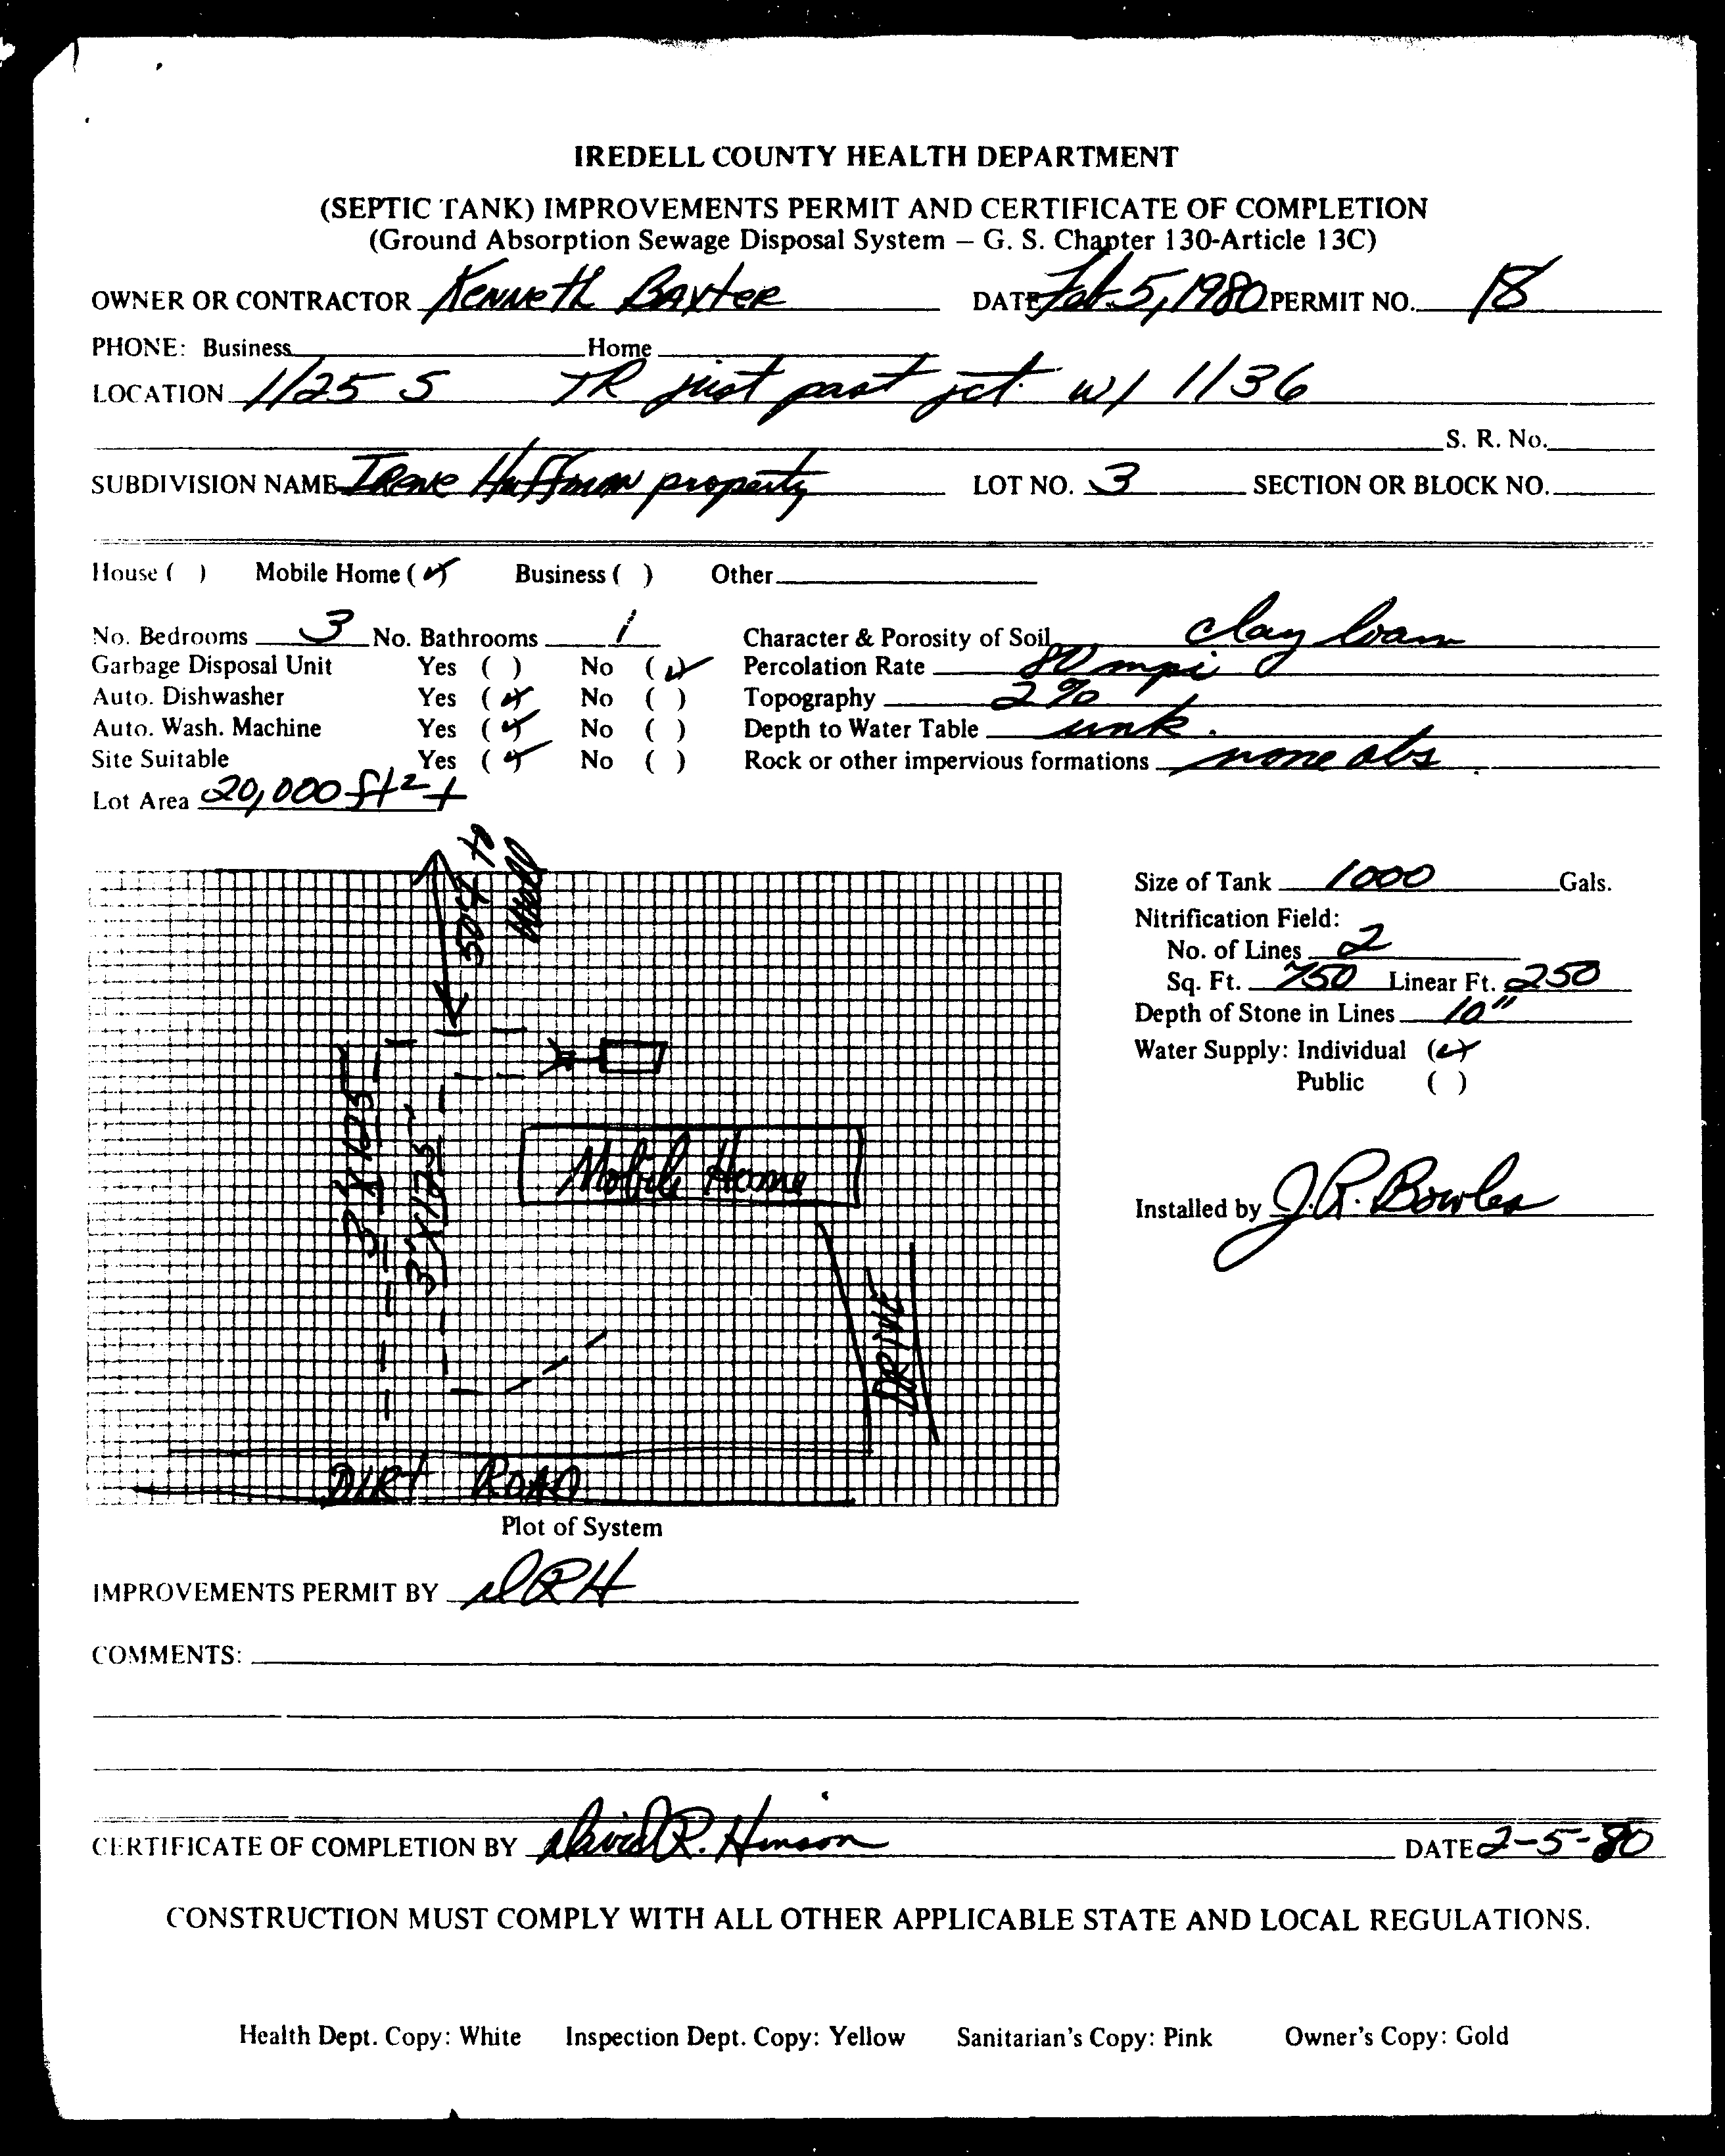 IREDELL COUNTY HEALTH DEPARTMENT
(SEPTIC TANK) IMPROVEMENTS PERMIT AND CERTIFICATE OF COMPLETION
(Ground Absorption Sewage Disposal System – G. S. Chapter 130-Article 13C)
OWNER OR CONTRACTOR Kenneth Baxter DATE Feb. 5, 1980 PERMIT NO. 18
PHONE: Business Home
LOCATION 1125 S TR just past jct. w/ 1136
S. R. No.
SUBDIVISION NAME Irene Huffman property LOT NO. 3 SECTION OR BLOCK NO.
House ( ) Mobile Home (✓) Business ( ) Other
No. Bedrooms 3 No. Bathrooms 1 Character & Porosity of Soil clay loam
Garbage Disposal Unit Yes ( ) No (✓) Percolation Rate 80 mpi
Auto. Dishwasher Yes (✓) No ( ) Topography 2%
Auto. Wash. Machine Yes (✓) No ( ) Depth to Water Table unk.
Site Suitable Yes (✓) No ( ) Rock or other impervious formations none obs.
Lot Area 20,000 ft² +
50ft to
Well
Size of Tank 1000 Gals.
Nitrification Field:
No. of Lines 2
Sq. Ft. 750 Linear Ft. 250
Depth of Stone in Lines 10"
Water Supply: Individual (✓)
Public ( )
3'X125
3'X125
Mobile Home
Installed by J.R. Bowles
DRIVE
DIRT ROAD
Plot of System
IMPROVEMENTS PERMIT BY DRH
COMMENTS:
CERTIFICATE OF COMPLETION BY David R. Hinson DATE 2-5-80
CONSTRUCTION MUST COMPLY WITH ALL OTHER APPLICABLE STATE AND LOCAL REGULATIONS.
Health Dept. Copy: White Inspection Dept. Copy: Yellow Sanitarian's Copy: Pink Owner's Copy: Gold